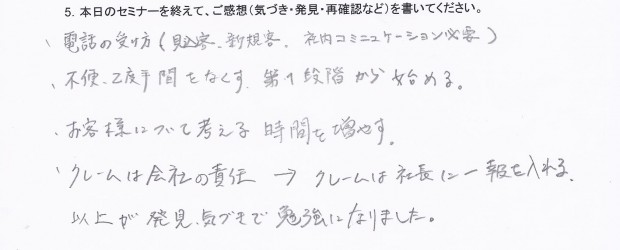 5. 本日のセミナーを終えて、ご感想(気づき・発見・再確認など)を書いてください。
、電話の受け方(見込客、新規客、社内コミニュケーション必要)
、不便、2度手間をなくす、第1段階から始める。
、お客様について考える時間を増やす。
、クレームは会社の責任 → クレームは社長に一報を入れる、
以上が発見、気づきで勉強になりました。